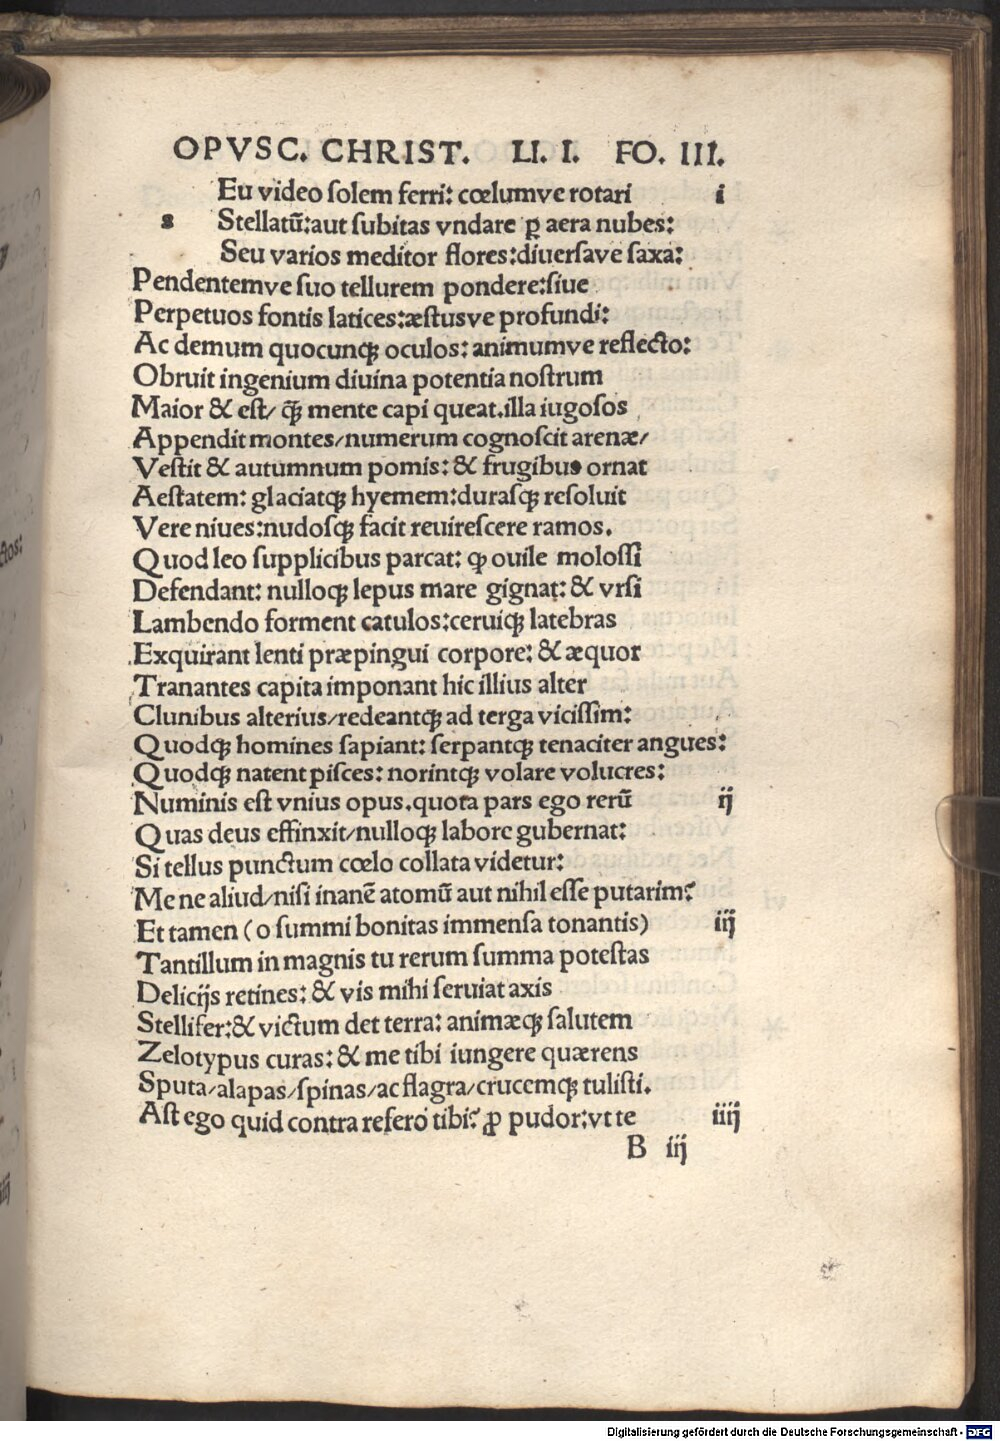 OPVSC. CHRIST. LI. I. FO. III.
Eu video ſolem ferri: cœlumve rotari i
s Stellatū: aut ſubitas vndare ꝑ aera nubes:
Seu varios meditor flores: diuerſave ſaxa:
Pendentemve ſuo tellurem pondere: ſiue
Perpetuos fontis latices: æſtusve profundi:
Ac demum quocunqꝫ oculos: animumve reflecto:
Obruit ingenium diuina potentia noſtrum
Maior & eſt/ q̄ꝫ mente capi queat. illa iugoſos
Appendit montes/ numerum cognoſcit arenæ/
Veſtit & autumnum pomis: & frugibus ornat
Aeſtatem: glaciatqꝫ hyemem: duraſqꝫ reſoluit
Vere niues: nudoſqꝫ facit reuireſcere ramos.
Quod leo ſupplicibus parcat: ꝙ ouile moloſſi
Defendant: nulloqꝫ lepus mare gignat: & vrſi
Lambendo forment catulos: ceruiqꝫ latebras
Exquirant lenti præpingui corpore: & æquor
Tranantes capita imponant hic illius alter
Clunibus alterius/ redeantqꝫ ad terga viciſſim:
Quodqꝫ homines ſapiant: ſerpantqꝫ tenaciter angues:
Quodqꝫ natent piſces: norintqꝫ volare volucres:
Numinis eſt vnius opus. quota pars ego rerū ij
Quas deus effinxit/ nulloqꝫ labore gubernat:
Si tellus punctum cœlo collata videtur:
Me ne aliud/ niſi inanē atomū aut nihil eſſe putarim?
Et tamen (o ſummi bonitas immenſa tonantis) iij
Tantillum in magnis tu rerum ſumma poteſtas
Delicijs retines: & vis mihi ſeruiat axis
Stellifer: & victum det terra: animæqꝫ ſalutem
Zelotypus curas: & me tibi iungere quærens
Sputa/ alapas/ ſpinas/ ac flagra/ crucemqꝫ tuliſti.
Aſt ego quid contra refero tibi? ꝓ pudor: vt te iiij
B iij
ctos:
iij
Digitalisierung gefördert durch die Deutsche Forschungsgemeinschaft - DFG